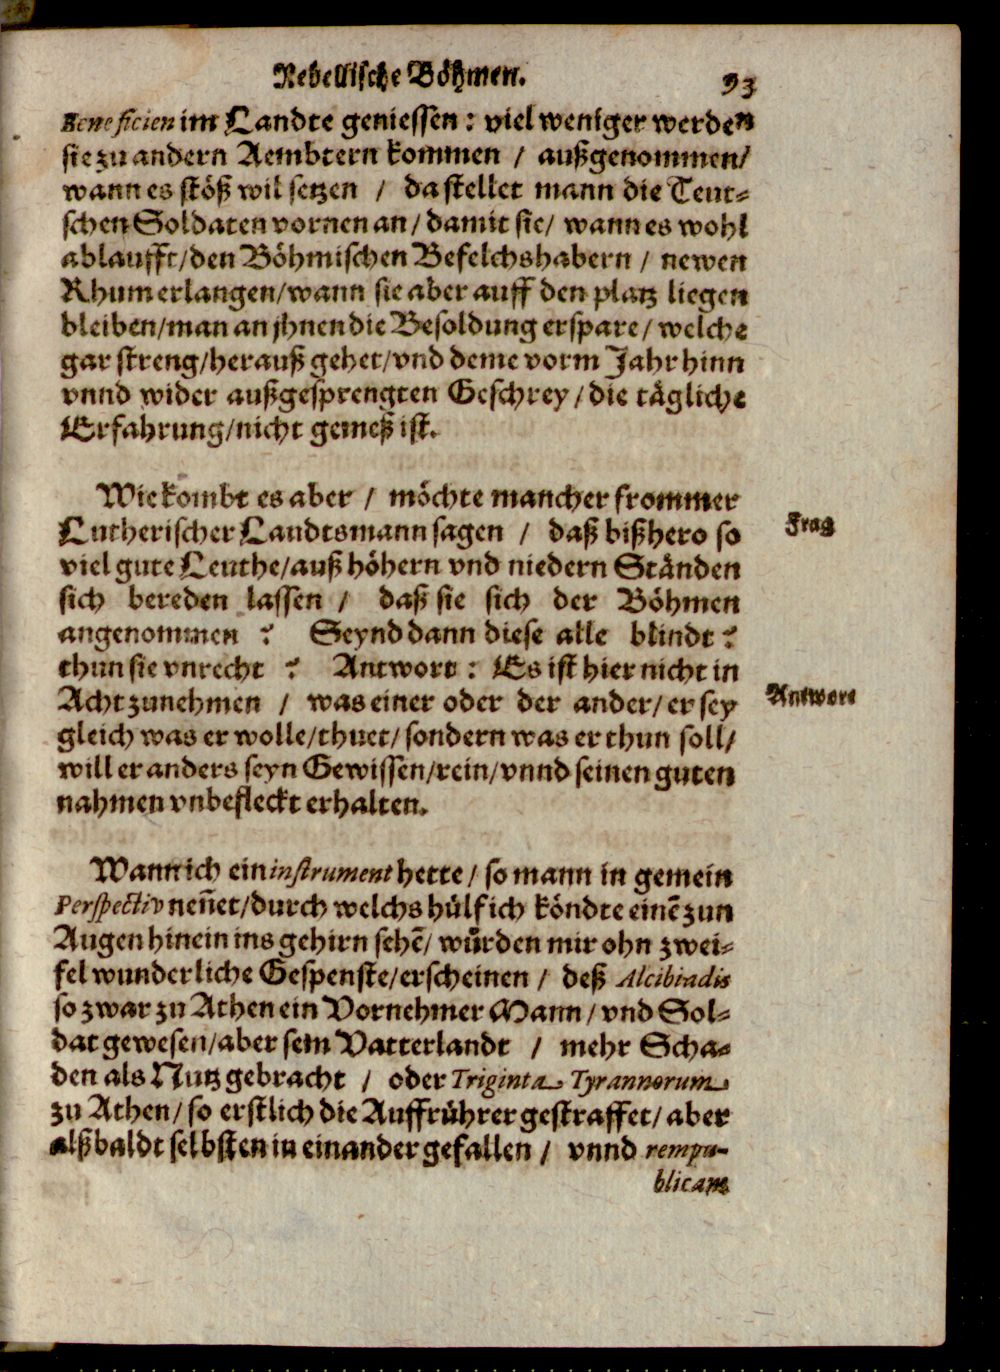 Rebellische Böhmen. 93
Beneficien im Landte geniessen: viel weniger werden
sie zu andern Aembtern kommen / außgenommen/
wann es stöß wil setzen / da stellet mann die Teut-
schen Soldaten vornen an/ damit sie/ wann es wohl
ablaufft/den Böhmischen Befelchshabern / newen
Rhum erlangen/wann sie aber auff den platz liegen
bleiben/man an jhnen die Besoldung erspare/ welche
gar streng/herauß gehet/vnd deme vorm Jahr hinn
vnnd wider außgesprengten Geschrey/ die tägliche
Erfahrung/nicht gemeß ist.
Wie kombt es aber / möchte mancher frommer
Lutherischer Landtsmann sagen / daß bißhero so
Frag
viel gute Leuthe/auß höhern vnd niedern Ständen
sich bereden lassen / daß sie sich der Böhmen
angenommen ? Seynd dann diese alle blindt ?
thun sie vnrecht ? Antwort : Es ist hier nicht in
Acht zunehmen / was einer oder der ander/ er sey
Antwort
gleich was er wolle/thuet/ sondern was er thun soll/
will er anders seyn Gewissen/rein/vnnd seinen guten
nahmen vnbefleckt erhalten.
Wann ich ein instrument hette/ so mann in gemein
Perspectiv neñet/durch welchs hülf ich köndte einẽ zun
Augen hinein ins gehirn sehẽ/ würden mir ohn zwei-
fel wunderliche Gespenste/erscheinen / deß Alcibiadis
so zwar zu Athen ein Vornehmer Mann/ vnd Sol-
dat gewesen/aber sein Vatterlandt / mehr Scha-
den als Nutz gebracht / oder Triginta Tyrannorum
zu Athen/ so erstlich die Auffrührer gestraffet/ aber
alßbaldt selbsten in einander gefallen / vnnd rempu-
blicam